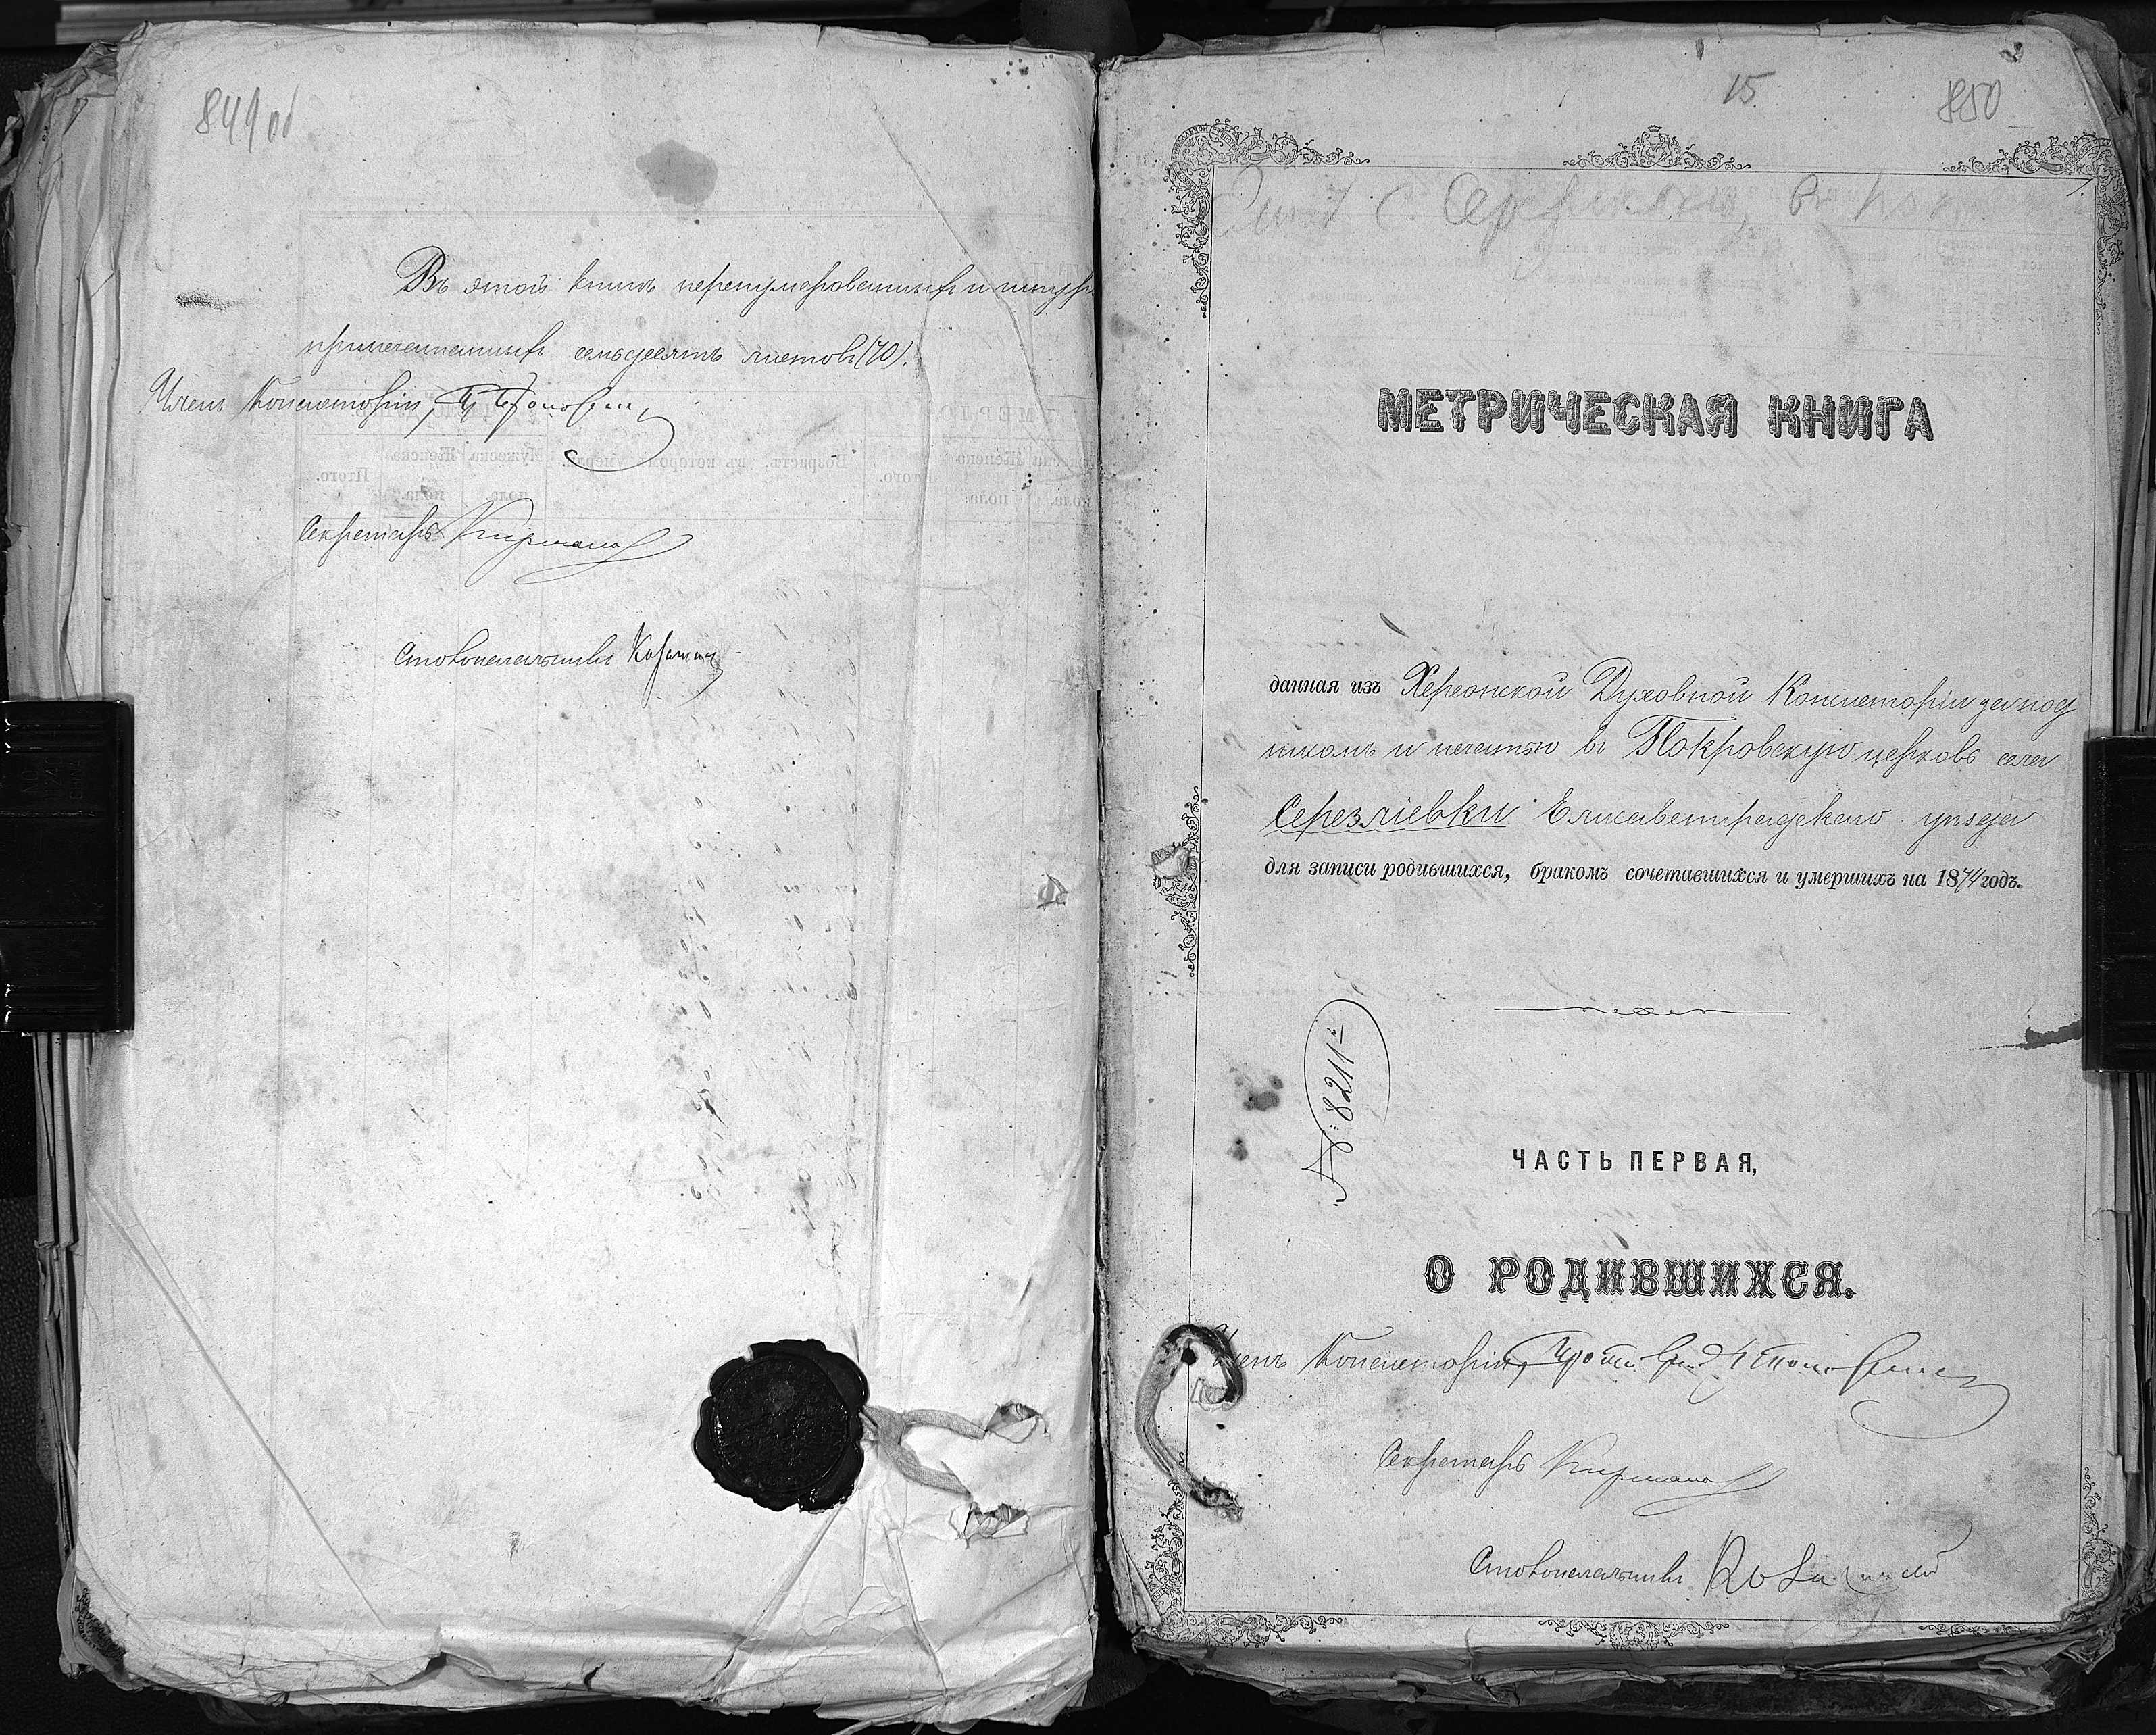 849 об
Въ этой книгѣ перенумерованныхъ и шнур
припечатанныхъ семьдесятъ листовъ (70).
Членъ Консисторіи,
Секретарь
Столоначальникъ
15
850
с.
МЕТРИЧЕСКАЯ КНИГА
данная изъ Херсонской Духовной Консисторіи за под
писомъ и печатью въ Покровскую церковь села
Серезліевки Елисаветградскаго уѣзда
для записи родившихся, бракомъ сочетавшихся и умершихъ на 1874 годъ.
№: 8211
ЧАСТЬ ПЕРВАЯ,
О РОДИВШИХСЯ.
Членъ Консисторіи,
Секретарь
Столоначальникъ